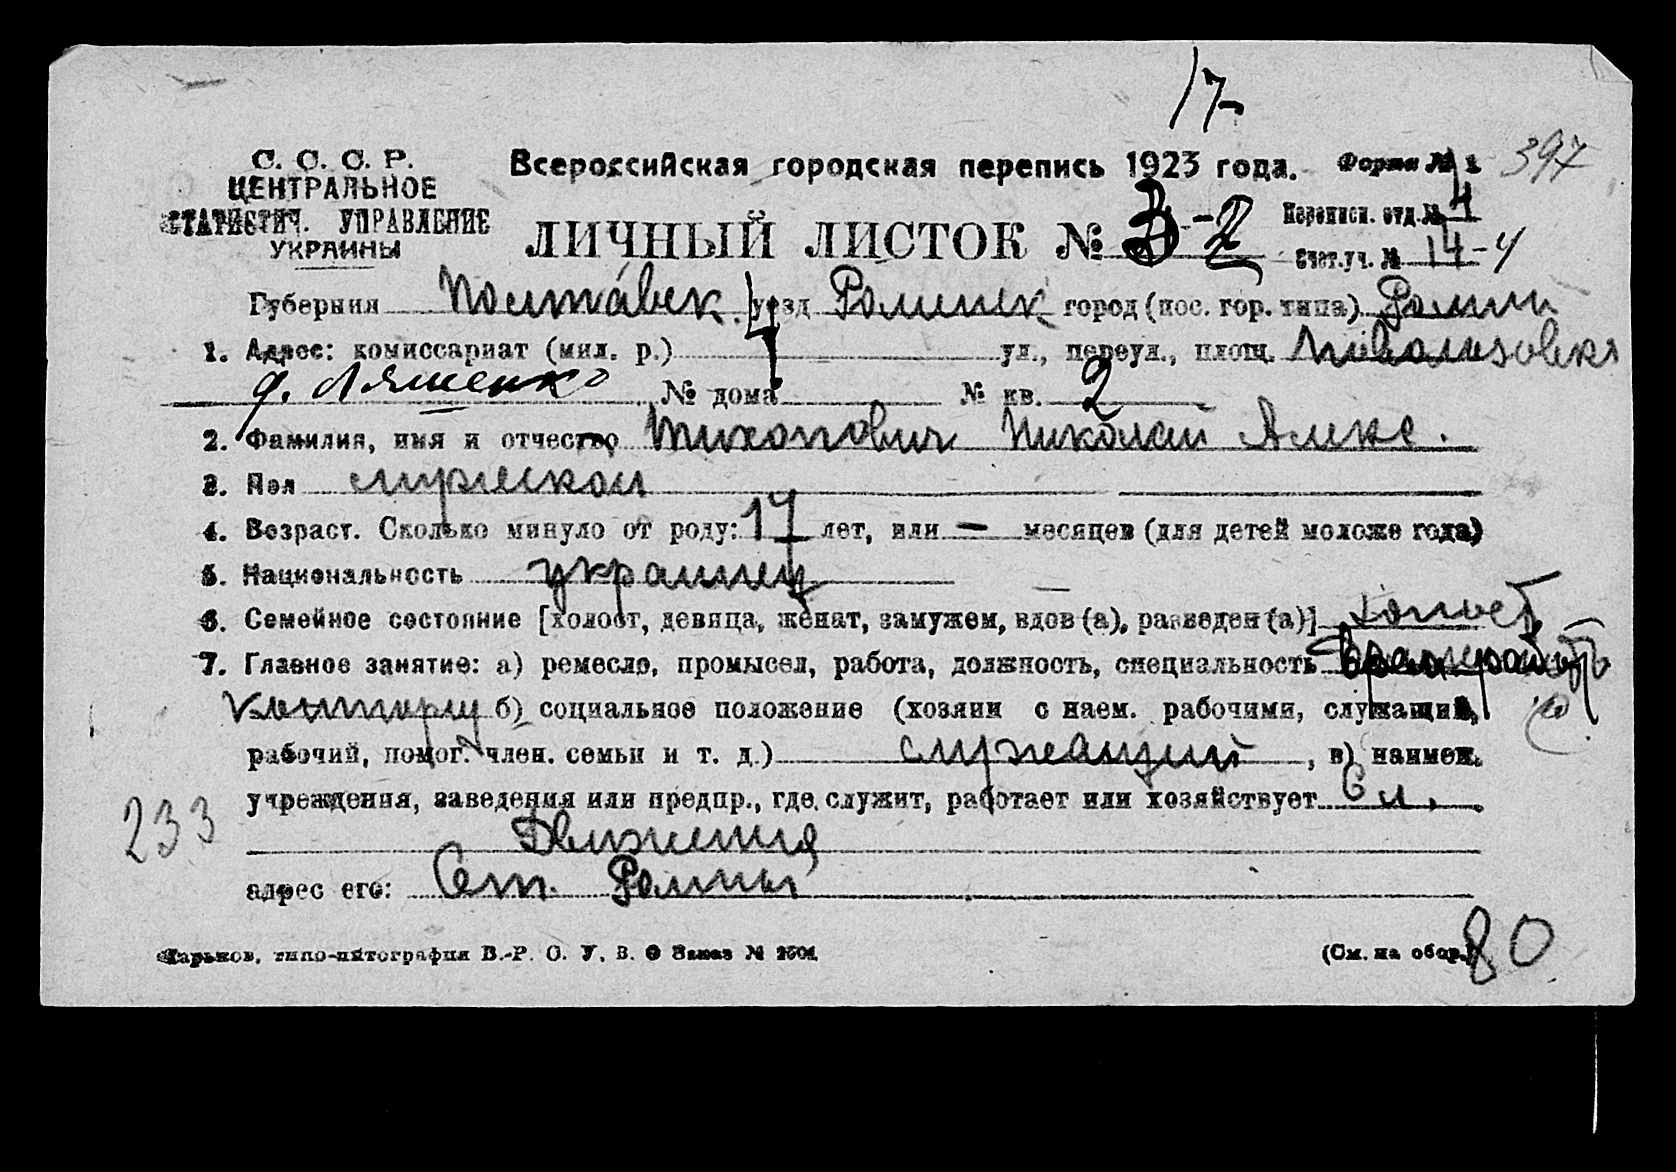 17
С. С. С. Р.
ЦЕНТРАЛЬНОЕ
СТАТИСТИЧ. УПРАВЛЕНИЕ
УКРАИНЫ
Всероссийская городская перепись 1923 года. Форма № 1 397
ЛИЧНЫЙ ЛИСТОК № 3-2
Переписн. отд. № 4
Счет. уч. № 14-4
Губерния Полтавск. уезд Роменск город (пос. гор. типа) Ромны
1. Адрес: комиссариат (мил. р.) 4 ул., переул., площ.
д. Ляшенко № дома № кв. 2
2. Фамилия, имя и отчество Тихонович Николай Алекс.
3. Пол мужской
4. Возраст. Сколько минуло от роду: 17 лет, или — месяцев (для детей моложе года)
5. Национальность украинец
6. Семейное состояние [холост, девица, женат, замужем, вдов (а), разведен (а)] холост
7. Главное занятие: а) ремесло, промысел, работа, должность, специальность
контору б) социальное положение (хозяин с наем. рабочими, служащий,
рабочий, помог. член. семьи и т. д.) служащий, в) наимен.
учреждения, заведения или предпр., где служит, работает или хозяйствует Сл.
Движения
233
адрес его: Ст. Ромны
Харьков, типо-литография В.-Р. О. У. В. О Заказ №
(См. на обор.) 80